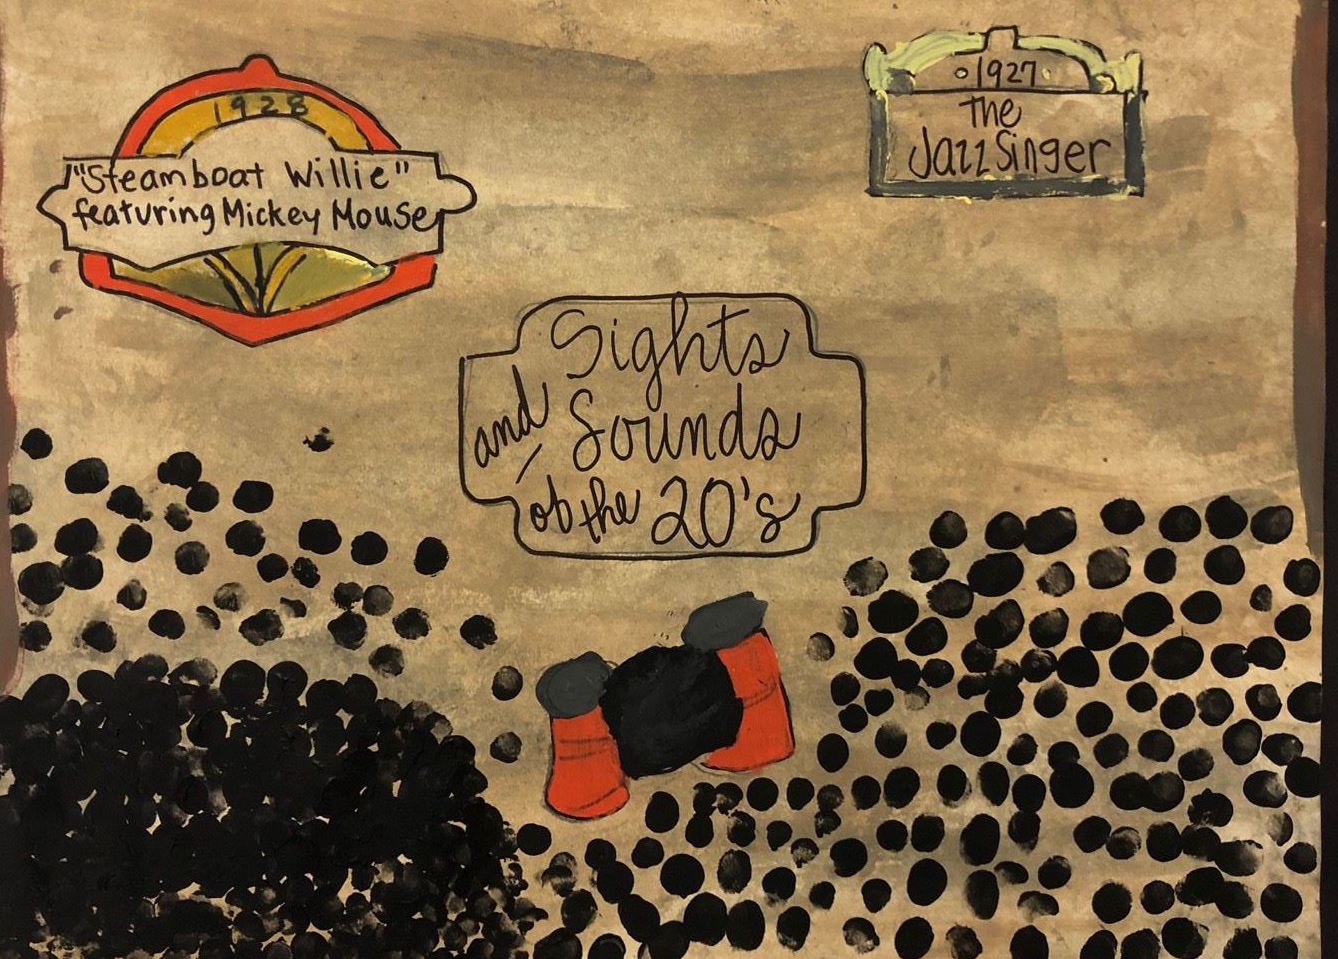 1928
"Steamboat Willie"
featuring Mickey Mouse
1927
The
Jazz Singer
Sights
and Sounds
of the 20's